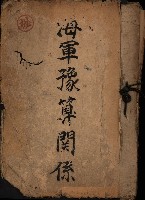 海軍豫算関係